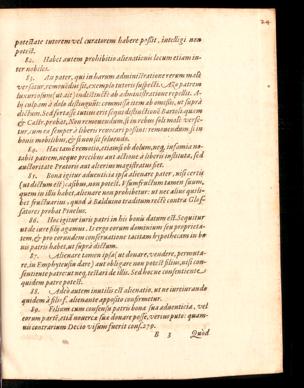 24
potestate tutorem vel curatorem habere possit, intelligi non
potest.
82. Habet autem prohibitio alienationis locum etiam in-
ter nobiles.
83. An pater, qui in harum administratione rerum male
versatur, removendus sit, exemplo tutoris suspecti. Ego patrem
luxuriosum (ut ait) indistincte ab administratione repellit. Al-
bij culpam à dolo distinguunt: commissa item ab omissis, ut suprà
dictum. Sed
& Castr. probat, Non removendum, si in rebus soli male verse-
tur, cum ea semper à liberis revocari possint: removendum si in
bonis mobilibus, & si non sit solvendo.
84. Hæc tamē remotio, etiamsi ob dolum, neq; infamia no-
tabit patrem, neque precibus aut actione à liberis instituta, sed
auctoritate Prætoris aut alterius magistratus fiet.
85. Bona igitur adventicia ipsa alienare pater, nisi certis
(ut dictum est) casibus, non potest. Vsumfructum tamen suum,
quem in illis habet, alienare non prohibetur: ut nec alius quili-
bet fructuarius, quod à Balduino traditum rectè contra Glos-
satores probat Pinellus.
86. Hoc igitur iuris patri in his bonis datum est. Sequitur
ut de iure filij agamus. Is ergo eorum dominium seu proprieta-
tem, & pro eorundem conservatione tacitam hypothecam in bo-
nis patris habet, ut suprà dictum.
87. Alienare tamen ipsa (ut donare, vendere, permuta-
re, in Emphyteusin dare) aut obligare non potest filius, nisi con-
sentiente patre: ut neq; testari de illis. Sed hoc ne consentiente
quidem patre potest.
88. Adeò autem inutilis est alienatio, ut ne iureiurando
quidem à filiof. alienante apposito confirmetur.
89. Filium cum consensu patris bona sua adventicia, vel
eorum partē, etiā novercæ suæ donare posse, verius puto: quam-
vis contrarium Decio visum fuerit cons. 270.
B 3 Quod